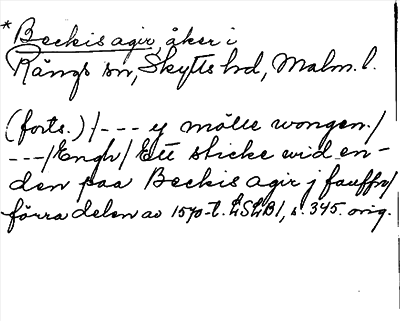 *Beckis agir, åker i
Rängs sn, Skytts hd, Malm. l.
(forts.) /--- y mölle wongen/
---/Engh/ Ett sticke wid en-
den paa Beckis agir j fauffne/
förra delen av 1570-t. LSLB1, s. 345. orig.